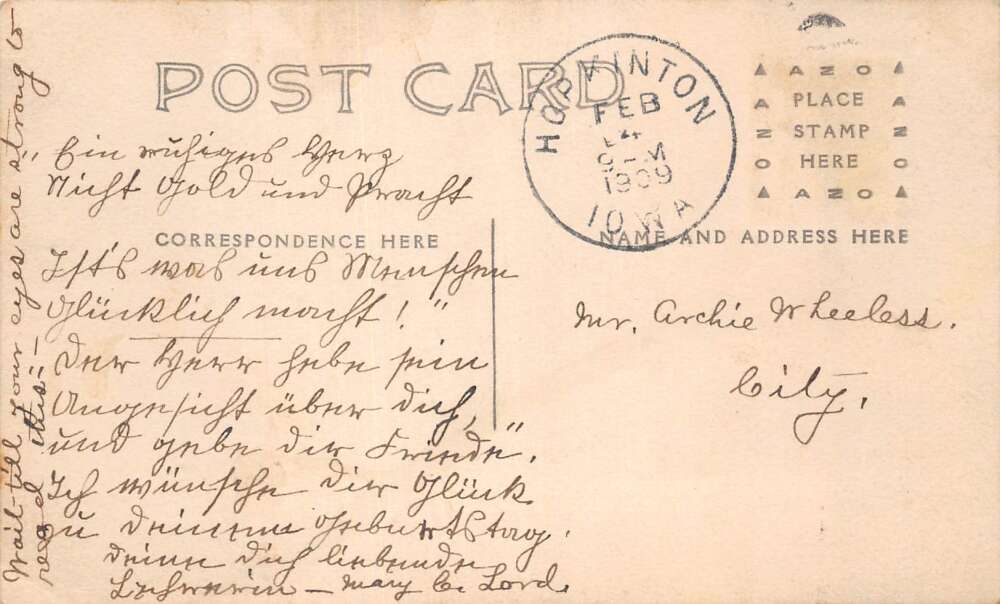 POST CARD
HOPKINTON
FEB
1909
IOWA
AZO
PLACE
STAMP
HERE
AZO
AZO
AZO
CORRESPONDENCE HERE
NAME AND ADDRESS HERE
„Ein ruhiges Herz
Nicht Gold und Pracht
Ist's was uns Menschen
Glücklich macht!"
Der Herr hebe sein
Angesicht über dich,
und gebe dir Friede."
Ich wünsche Dir Glück
zu deinem Geburtstag.
Deine dich liebende
Lehrerin — Mary C. Lord.
Wait till your eyes are strong to
read this:—
Mr. Archie Wheeless.
City.